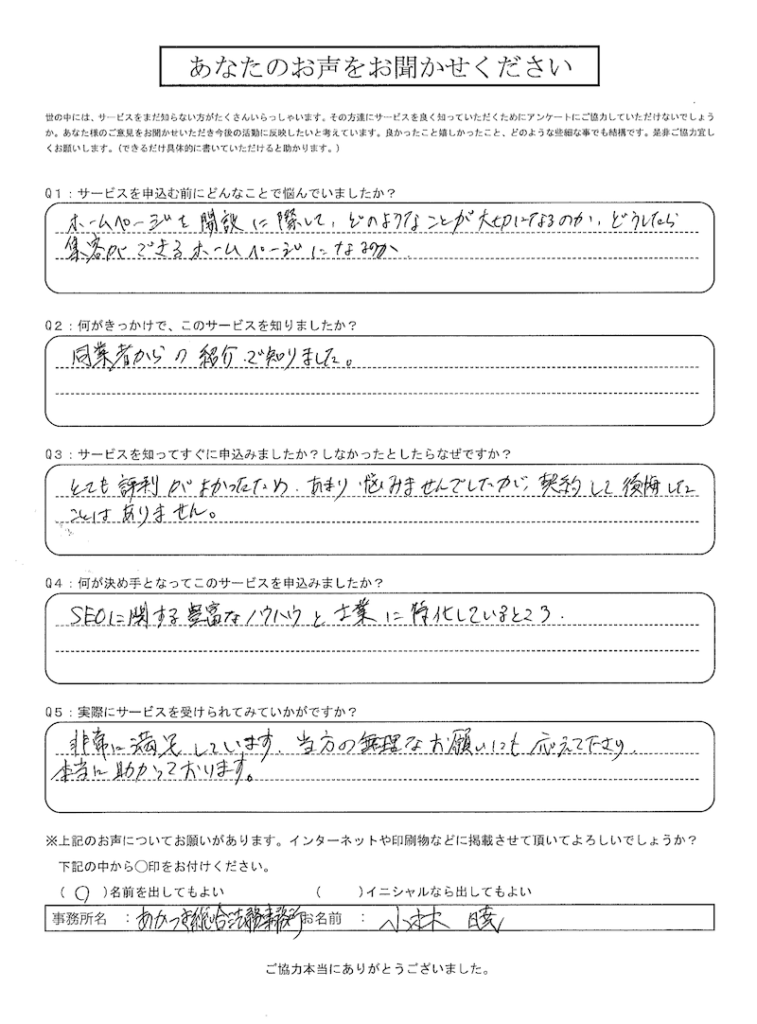 あなたのお声をお聞かせください
世の中には、サービスをまだ知らない方がたくさんいらっしゃいます。その方達にサービスを良く知っていただくためにアンケートにご協力していただけないでしょう
か。あなた様のご意見をお聞かせいただき今後の活動に反映したいと考えています。良かったこと嬉しかったこと、どのような些細な事でも結構です。是非ご協力宜し
くお願いします。(できるだけ具体的に書いていただけると助かります。)
Q1：サービスを申込む前にどんなことで悩んでいましたか？
ホームページを開設に際して、どのようなことが大切になるのか、どうしたら
集客ができるホームページになるのか.
Q2：何がきっかけで、このサービスを知りましたか？
同業者からの紹介で知りました。
Q3：サービスを知ってすぐに申込みましたか？しなかったとしたらなぜですか？
とても評判がよかったため、あまり悩みませんでしたが、契約して後悔した
ことはありません。
Q4：何が決め手となってこのサービスを申込みましたか？
SEOに関する豊富なノウハウと士業に特化しているところ.
Q5：実際にサービスを受けられてみていかがですか？
非常に満足しています。当方の無理なお願いにも応えて下さり、
本当に助かっております。
※上記のお声についてお願いがあります。インターネットや印刷物などに掲載させて頂いてよろしいでしょうか？
下記の中から○印をお付けください。
(○)名前を出してもよい ( )イニシャルなら出してもよい
事務所名 ：あかつき総合法務事務所 お名前 ： 小林 暁
ご協力本当にありがとうございました。